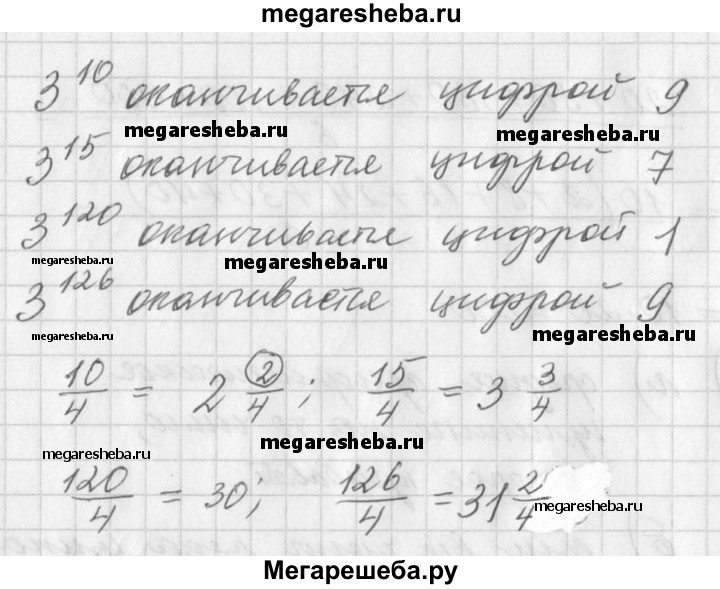 megaresheba.ru
3^10 оканчивается цифрой 9
megaresheba.ru megaresheba.ru
3^15 оканчивается цифрой 7
3^120 оканчивается цифрой 1
megaresheba.ru megaresheba.ru
3^126 оканчивается цифрой 9
megaresheba.ru megaresheba.ru
10/4 = 2 2/4; 15/4 = 3 3/4
megaresheba.ru megaresheba.ru
120/4 = 30; 126/4 = 31 2/4
megaresheba.ru
Мегарешеба.ру